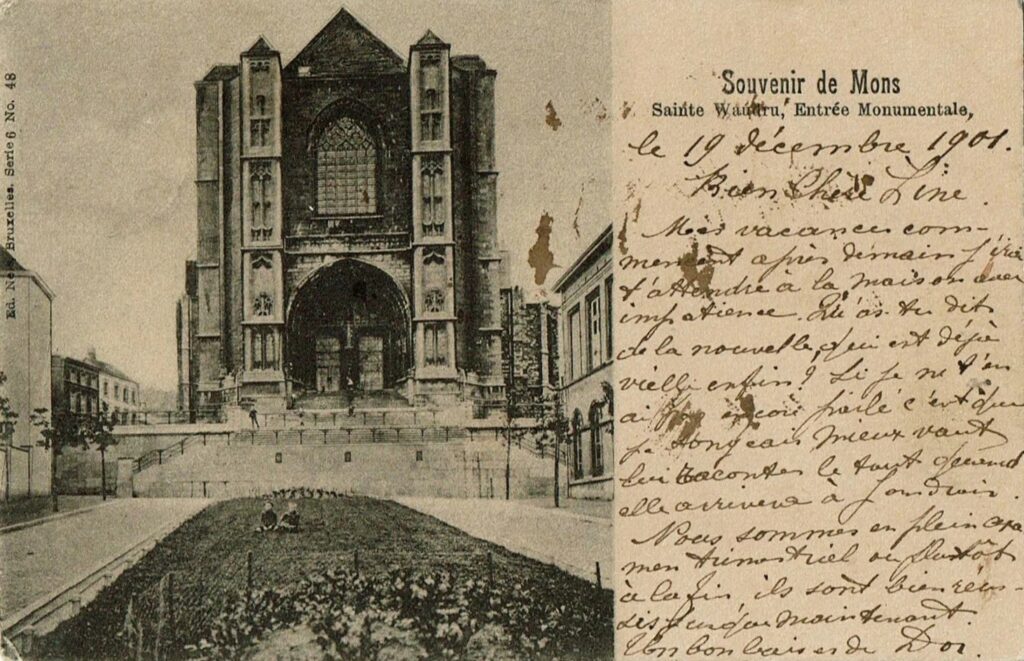 Ed. Ne Bruxelles. Serie 6 No. 48
Souvenir de Mons
Sainte Waudru, Entrée Monumentale,
le 19 décembre 1901.
Bien Chère Line.
Mes vacances com-
mencent après demain j'irai
t'attendre à la maison avec
impatience. Qu'as tu dit
de la nouvelle, qui est déjà
vieille enfin? Si je ne t'en
ai encore parlé c'est que
je songeais mieux vaut
lui raconter le tout quand
elle arrivera à
Nous sommes en plein exa
men trimestriel ou plutôt
à la fin ils sont bien réus-
sis jusque maintenant.
Un bon baiser de Dor.